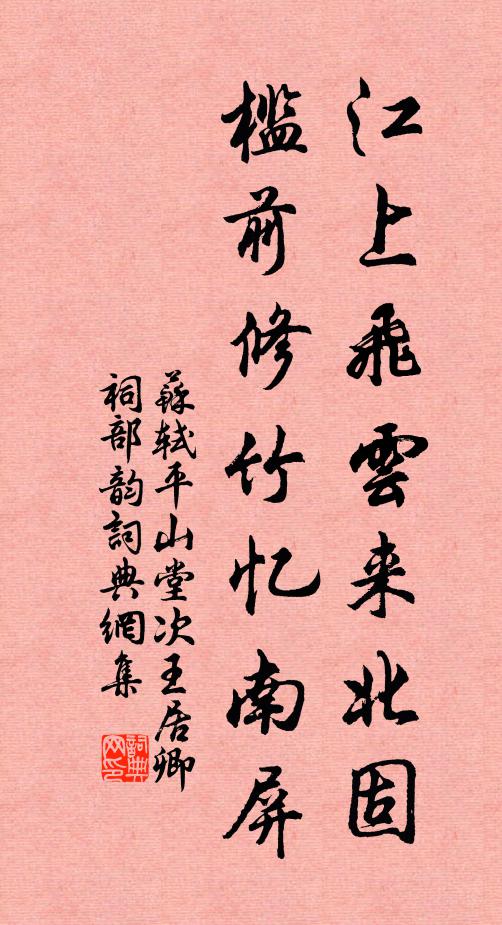 江上飛雲来北固
槛前修竹忆南屏
蘇轼平山堂次王居卿
祠部韵詞典網集
詞典网印